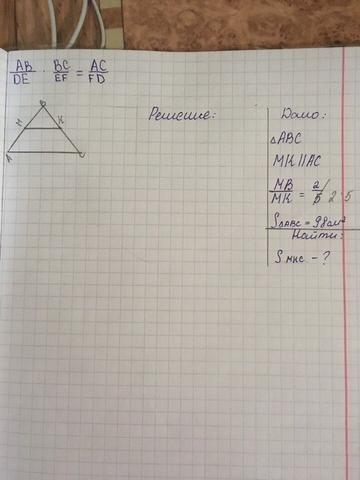 AB/DE · BC/EF = AC/FD
B
M K
A C
Решение:
Дано:
△ABC
MK||AC
MB/MK = 2/5 2:5
S△ABC = 98 см²
Найти:
S MKC - ?